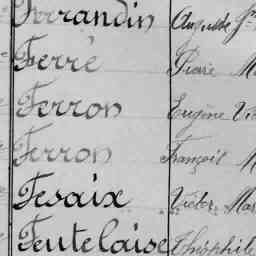 Ferrandin Auguste
Ferré Pierre
Ferron Eugène
Ferron François
Fesaix Victor
Feutelaise Théophile